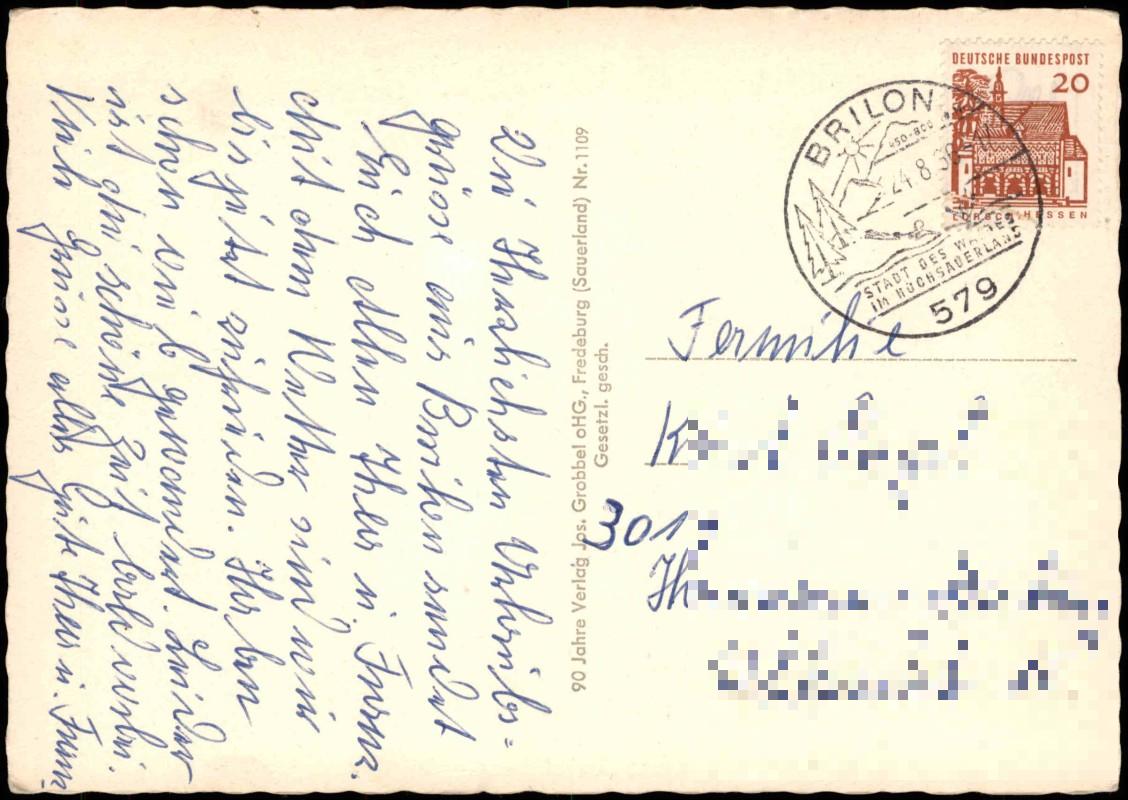 Die Herzlichsten Urlaubs=
grüsse aus Brilon sendet
Euch Allen Theo u.
Mit dem Wetter sind wir
bis jetzt zufrieden. Haben
schon viel gewandert. Leider
ist die schöne Zeit bald vorbei.
Viele Grüsse alles Gute Theo u.
90 Jahre Verlag Jos. Grobbel oHG., Fredeburg (Sauerland) Nr. 1109
Gesetzl. gesch.
DEUTSCHE BUNDESPOST
20
LORSCH HESSEN
BRILON
450-800
24.8.
STADT DES WALDES
IM HOCHSAUERLAND
579
Familie
K
301